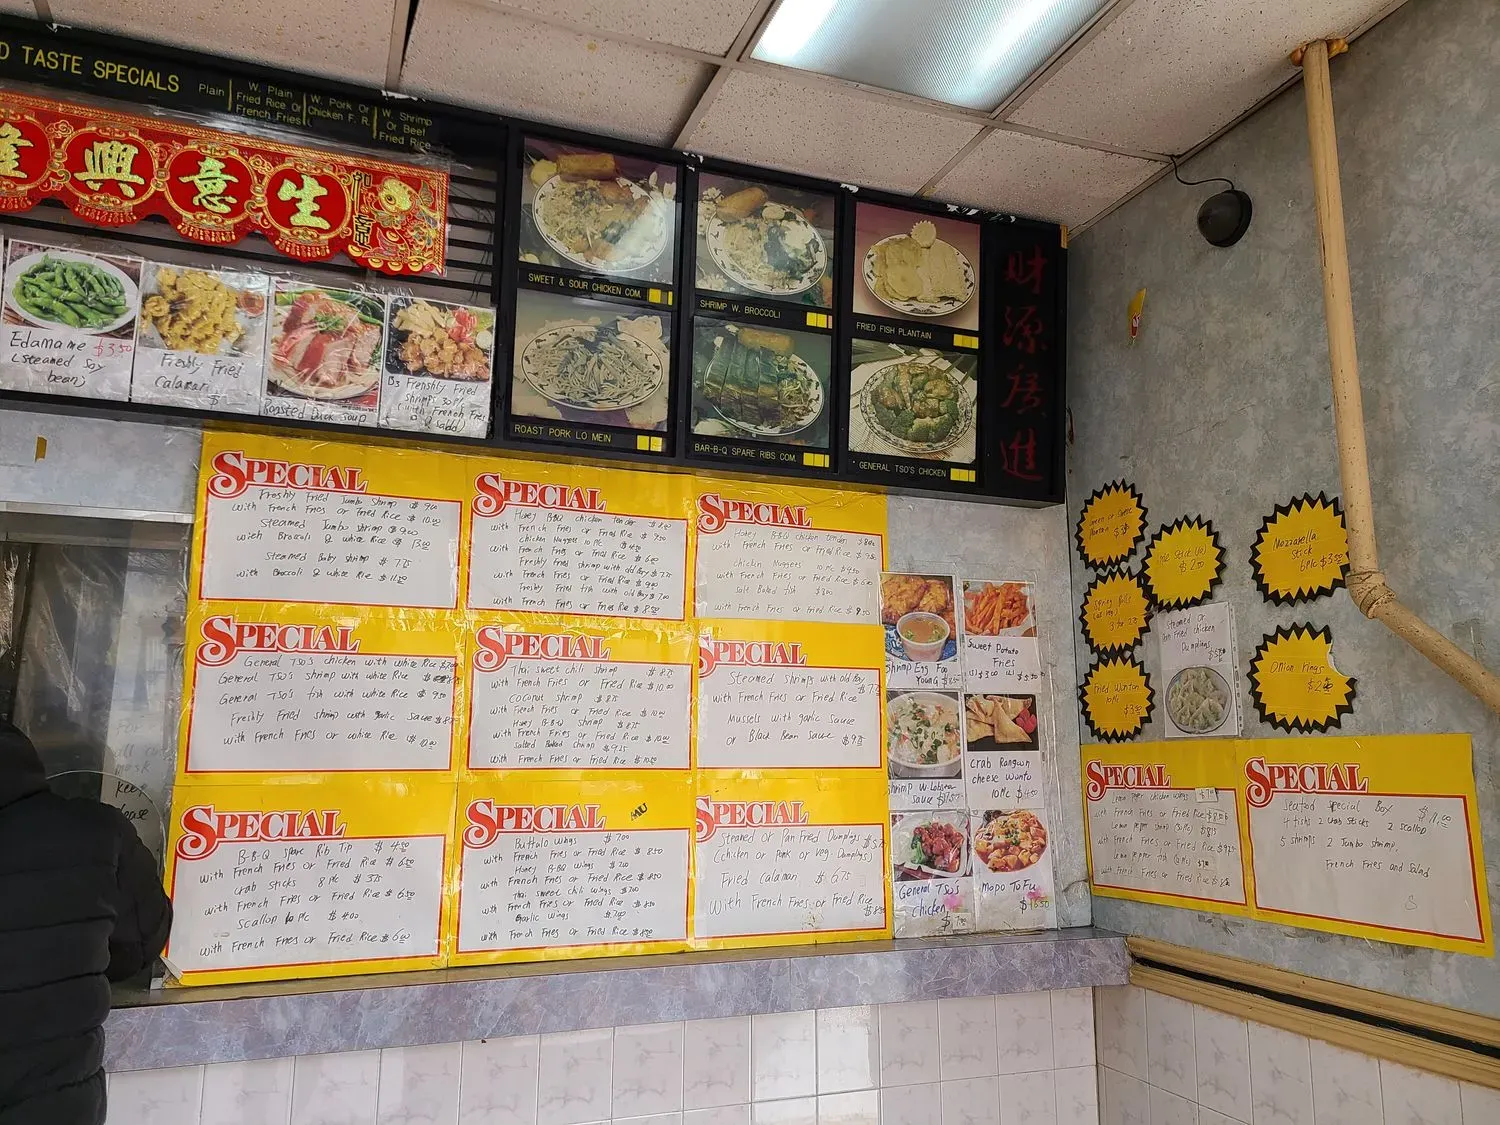 D TASTE SPECIALS
Plain
W. Plain
Fried Rice Or
French Fries
W. Pork Or
Chicken F. R.
W. Shrimp
Or Beef
Fried Rice
興 意 生
Edamame $3.50
(steamed Soy
bean)
Freshly Fried
Calamari
Roasted Duck soup
B3 Frenshly Fried
shrimps 30Pc
(with French Fries
salad)
SWEET & SOUR CHICKEN COM.
SHRIMP W. BROCCOLI
FRIED FISH PLANTAIN
ROAST PORK LO MEIN
BAR-B-Q SPARE RIBS COM.
GENERAL TSO'S CHICKEN
財
源
廣
進
SPECIAL
Freshly Fried Jumbo Shrimp $ 9.00
with French Fries or Fried Rice $ 10.00
Steamed Jumbo shrimp $ 9.00
with Broccoli & white Rice $ 13.00
Steamed Baby shrimp $ 7.75
with Broccoli & white Rice
SPECIAL
Honey B-B-Q chicken tender
with French Fries or Fried Rice $ 9.50
chicken Nuggets 10 PC
with French Fries or Fried Rice $ 6.00
Freshly Fried shrimp with old Bay $ 7.75
with French Fries or Fried Rice $ 9.00
Freshly Fried fish with old Bay
with French Fries or Fried Rice
SPECIAL
Honey B-B-Q chicken tender
with French Fries or Fried Rice
chicken Nuggets 10 PC $ 4.50
with French Fries or Fried Rice
Salt Baked fish
with French Fries or Fried Rice
SPECIAL
General Tso's chicken with white Rice
General Tso's shrimp with white Rice
General Tso's fish with white Rice $ 9.50
Freshly Fried shrimp with garlic sauce
with French Fries or white Rice $ 10.00
SPECIAL
Thai sweet chili shrimp $ 8.75
with French Fries or Fried Rice $ 10.00
coconut shrimp $ 8.75
with French Fries or Fried Rice $ 10.00
Honey B-B-Q shrimp $ 8.75
with French Fries or Fried Rice $ 10.00
salted Baked shrimp $ 9.25
with French Fries or Fried Rice
SPECIAL
Steamed shrimps with old Bay
with French Fries or Fried Rice
Mussels with garlic sauce
or Black Bean sauce
SPECIAL
B-B-Q Spare Rib Tip $ 4.50
with French Fries or Fried Rice $ 6.50
crab sticks 8 PC $ 3.75
with French Fries or Fried Rice $ 6.50
scallop 10 PC $ 4.00
with French Fries or Fried Rice $ 6.00
SPECIAL
Buffalo wings $ 7.00
with French Fries or Fried Rice $ 8.50
Honey B-B-Q wings $ 7.00
with French Fries or Fried Rice $ 8.50
Thai sweet chili wings $ 7.00
with French Fries or Fried Rice $ 8.50
Garlic wings $ 7.00
with French Fries or Fried Rice
SPECIAL
Steamed or Pan Fried Dumplings
(chicken or pork or Veg. Dumplings)
Fried Calamari $ 6.75
with French Fries or Fried Rice
Shrimp Egg Foo
Young
Sweet Potato
Fries
Shrimp W. Lobster
sauce
Crab Rangoon
cheese Wonton
10 PC $ 4.50
General Tso's
chicken
Mopo ToFu
$3.00
$ 2.50
Spring Rolls
Fried Wonton
10 PC
$3.00
Steamed Or
Pan Fried chicken
Dumplings
Mozzarella
Stick
6PC $3.50
Onion Rings
SPECIAL
Lemon Pepper chicken wings
with French Fries or Fried Rice
Lemon Pepper shrimp
with French Fries or Fried Rice
Lemon Pepper fish
with French Fries or Fried Rice
SPECIAL
Seafood special Box $ 11.00
4 fishs 2 crab sticks 2 scallop
5 shrimps 2 Jumbo shrimp,
French Fries and Salad